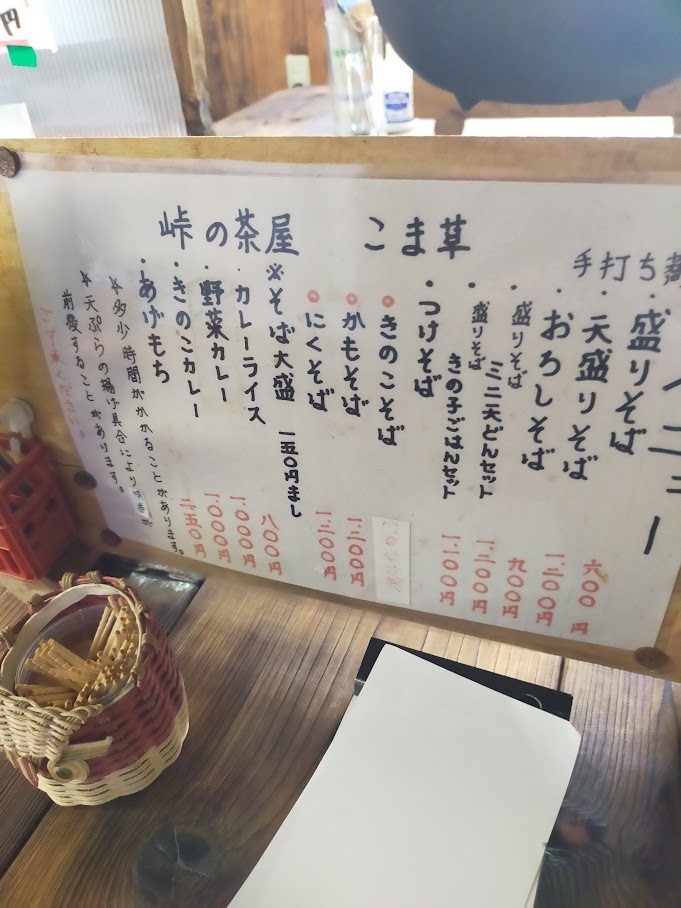 円
峠の茶屋 こま草 手打ち蕎
メニュー
・盛りそば 六〇〇円
・天盛りそば 一、二〇〇円
・おろしそば 九〇〇円
・盛りそば ミニ天どんセット 一、二〇〇円
・盛りそば きの子ごはんセット 一、一〇〇円
・つけそば
○きのこそば
○かもそば 一、二〇〇円
○にくそば 一、一〇〇円
※そば大盛 一五〇円まし
・カレーライス 八〇〇円
・野菜カレー 一、〇〇〇円
・きのこカレー 一〇〇〇円
・あげもち 二五〇円
＊多少時間がかかることがあります。
＊天ぷらの揚げ具合により順番が
前後することがあります。
ご了承ください。